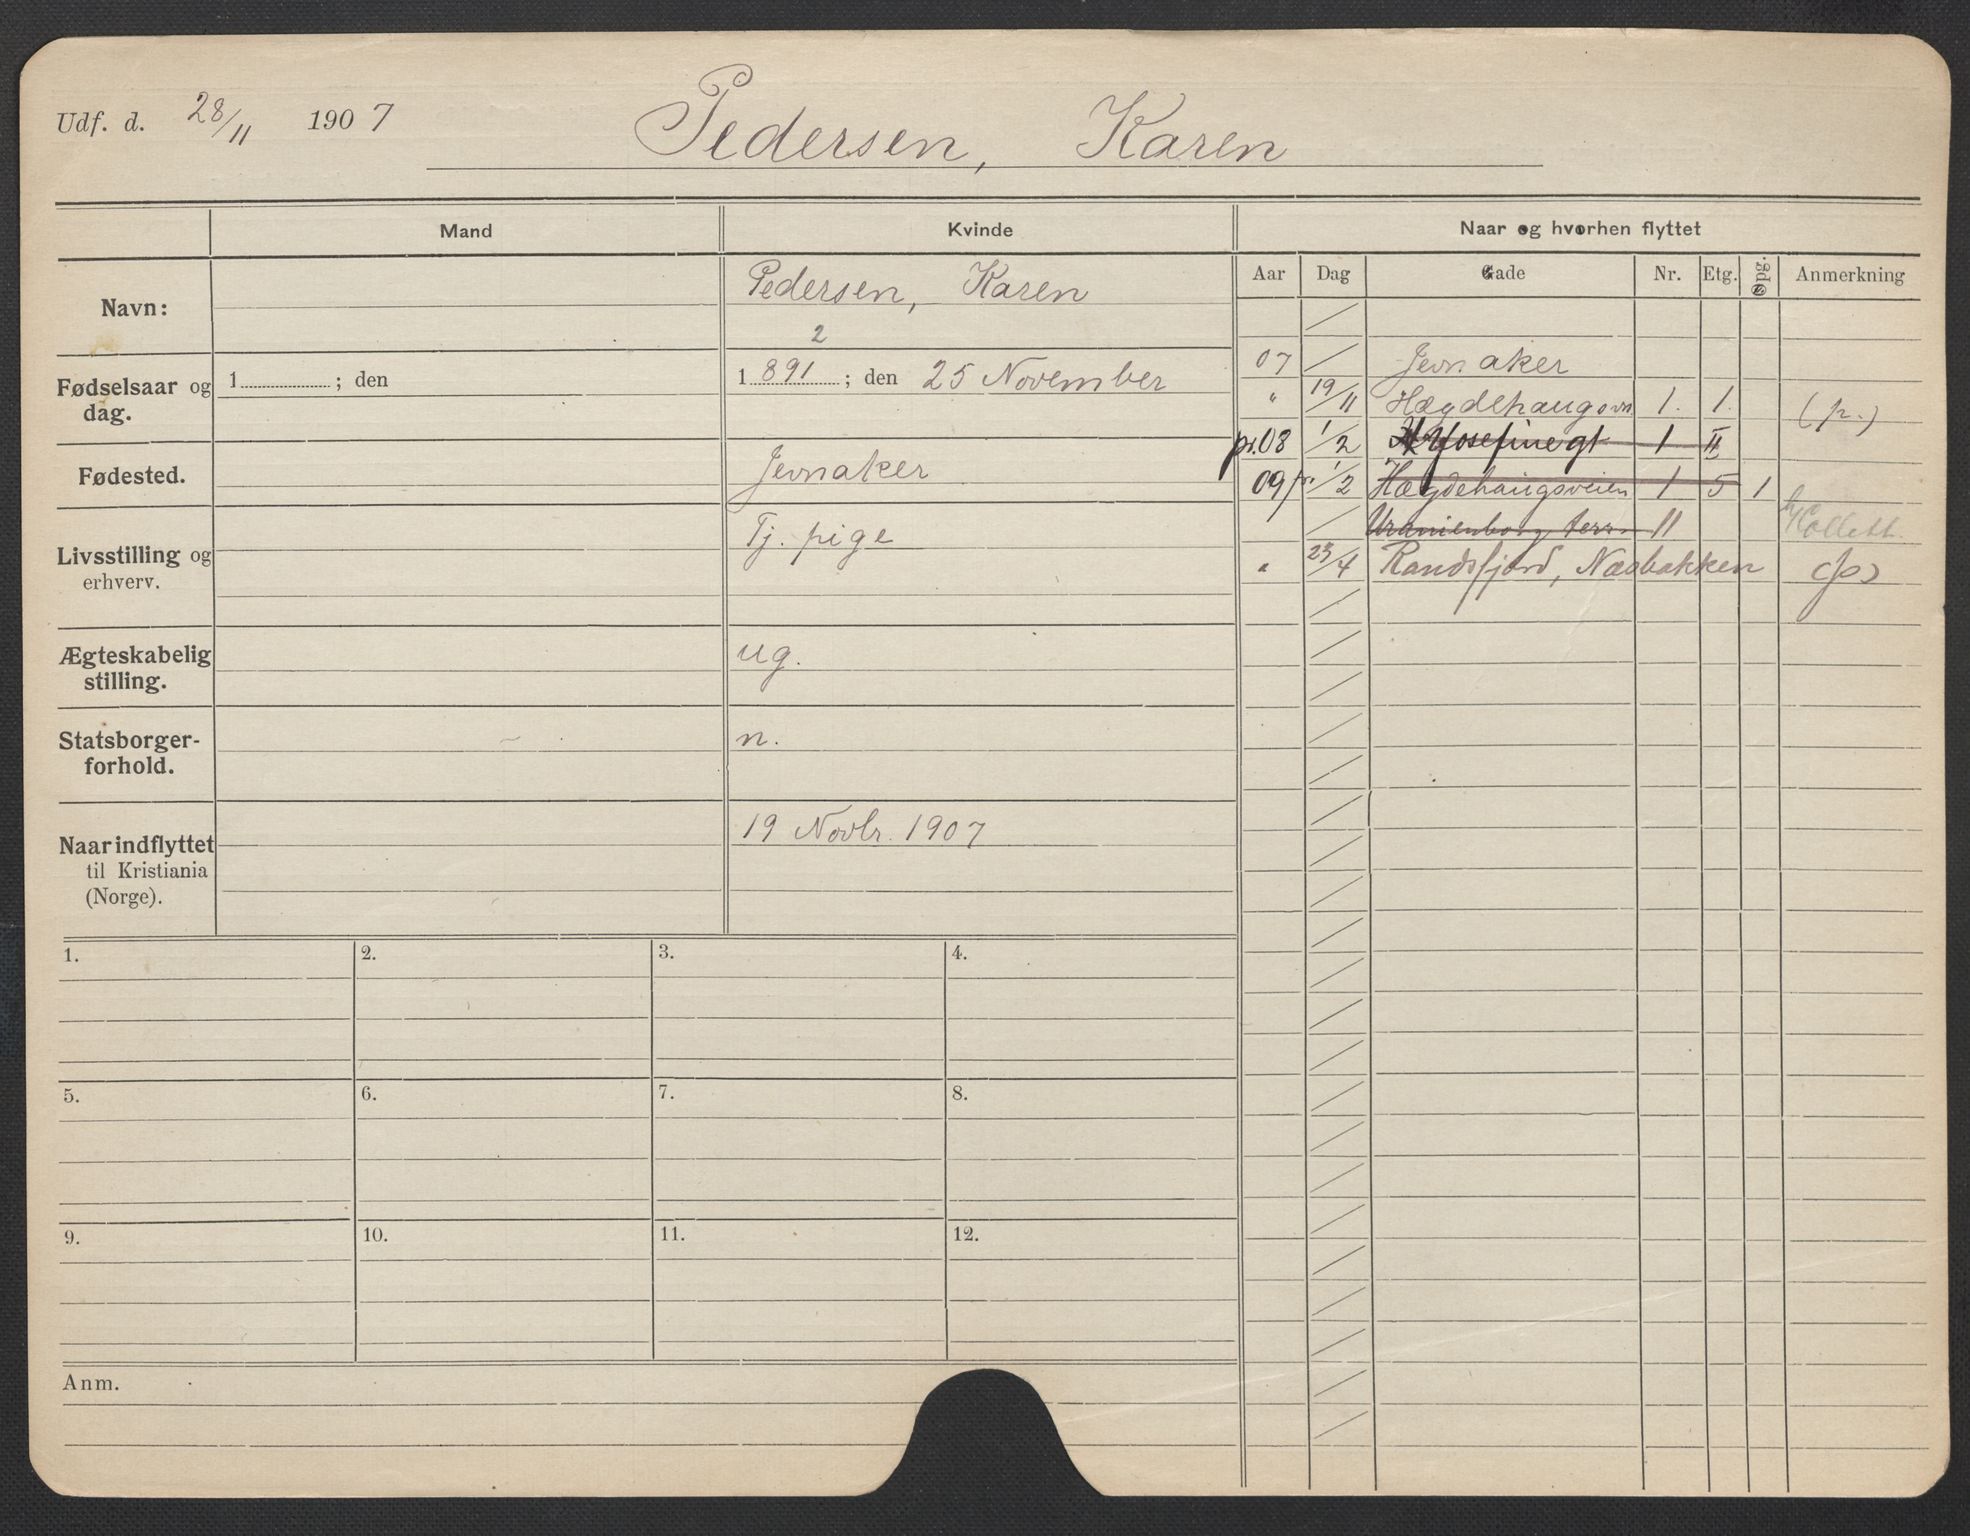 Udf. d. 28/11 1907
Pedersen, Karen
Mand
Kvinde
Naar og hvorhen flyttet
Aar Dag Gade Nr. Etg. Opg. Anmerkning
Navn:
Pedersen, Karen
2
Fødselsaar og dag.
1 ; den
1891 ; den 25 November
Fødested.
Jevnaker
Livsstilling og
erhverv.
Tj. pige
Ægteskabelig
stilling.
ug.
Statsborger-
forhold.
n.
Naar indflyttet
til Kristiania
(Norge).
19 Novbr. 1907
07 / Jevnaker
" 19/11 Hægdehaugsvn. 1. 1. (p.)
pr. 08 1/2 Josefinegt 1 II
09 1/2 Hægdehaugsveien 1 5 1
/ Uranienborg terr. 11 Collett.
" 23/4 Randsfjord, Næsbakken (p)
1.
2.
3.
4.
5.
6.
7.
8.
9.
10.
11.
12.
Anm.